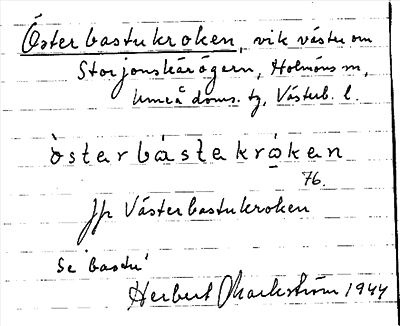 Österbastukroken, vik väster om
Storjonskärögern, Holmöns sn,
Umeå doms. tg, Västerb. l.
òstarbástakrókan
76.
Jfr Västerbastukroken
Se 'bastu'
Herbert Markström 1944